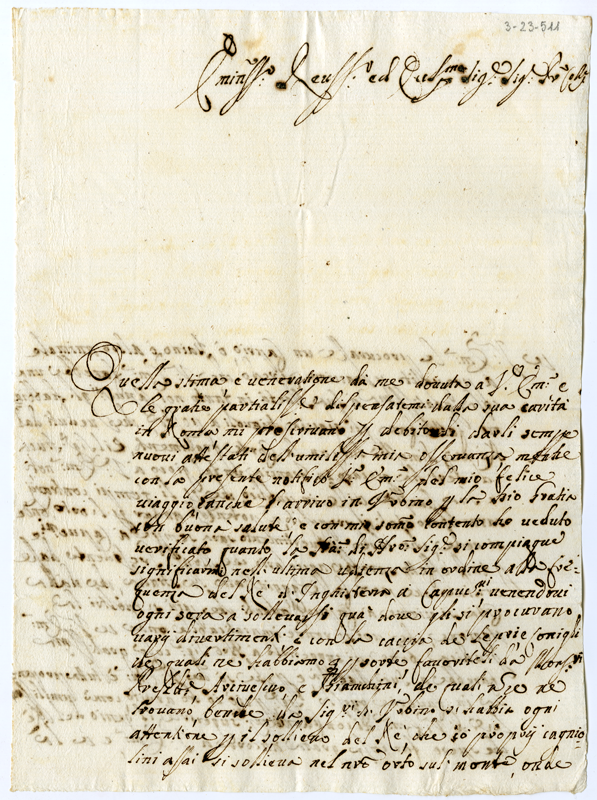 3-23-511
Emin.mo Reu.mo ed Ecc.mo Sig.r Sig.r
Quella stima e ueneratione da me douuta a V. Em.a e
le gratie partialiss.e dispensatemi dalla sua carità
in Roma mi prescriuano darli sempre
nuoui attestati dell'umiliss.a mia osseruanza
con la presente notifico V. Em.a del mio felice
uiaggio l'arriuo in Vrbino la Dio gratia
con buona salute; e con mio sommo contento ho ueduto
uerificato quanto la Sig.re si compiaque
significarmi nell'ultima udienza in ordine alla fre-
quenza del Rè d'Inghilterra a Capuc.ni uenendoui
ogni sera a solleuarsi quà doue gli si procurano
uarij diuertimenti e con la caccia de Lepri e Conigli
de quali ne habbiamo sorte fauoriteli da Mons.ri
Prefetti Arciuescuo, e Bianchini, de quali ne
trouano bene la Sig.ri di Vrbino si habbia ogni
attentione il sollieuo del Rè che co' proprij cagnio-
lini assai si sollieua nel nro orto sul monte, onde